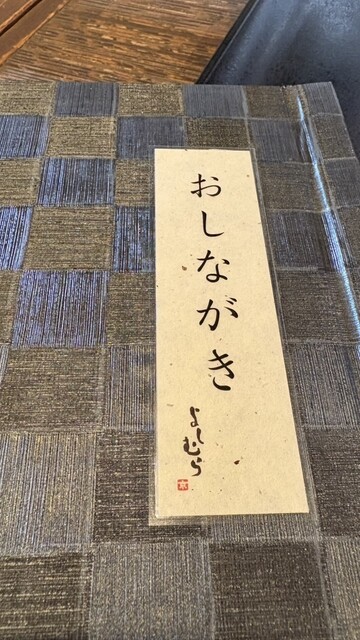 おしながき
よしむら